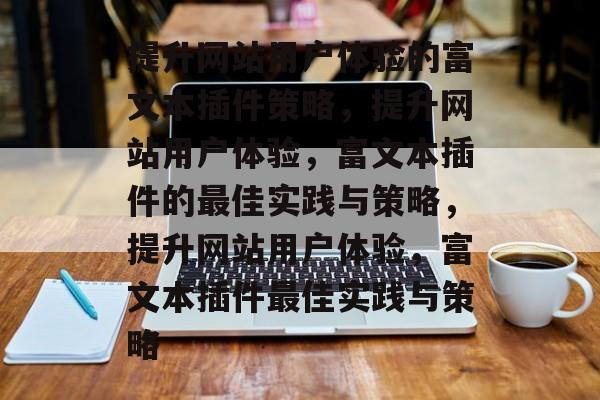 提升网站用户体验的富
文本插件策略，提升网
站用户体验，富文本插
件的最佳实践与策略，
提升网站用户体验，富
文本插件最佳实践与策
略